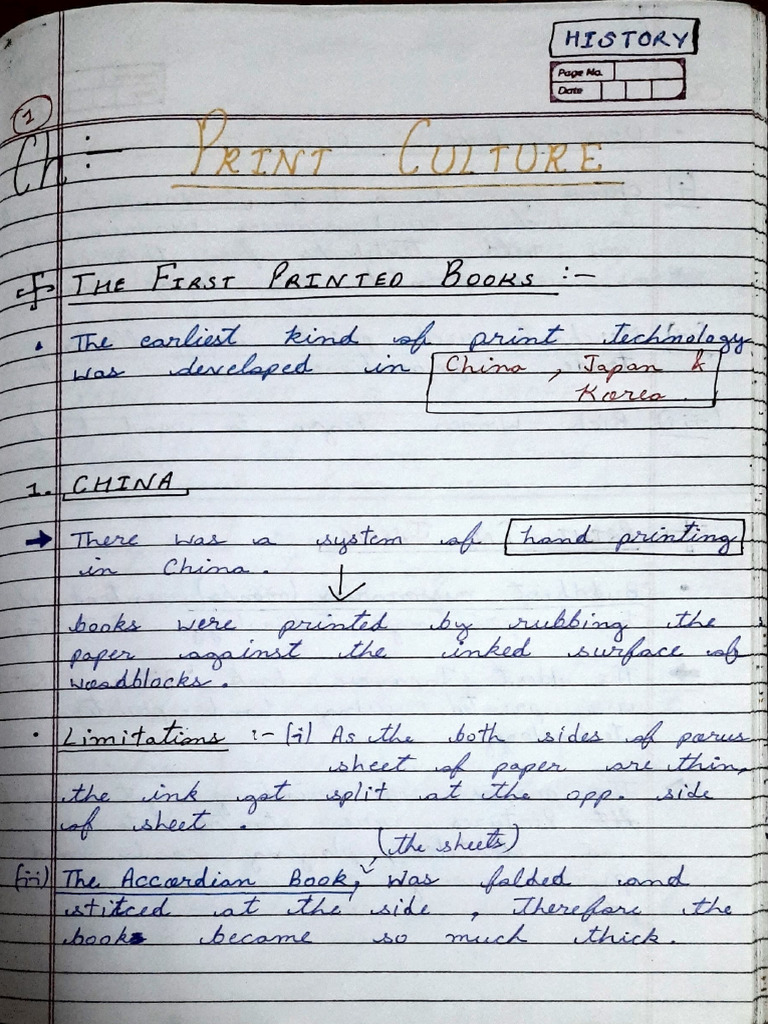 HISTORY
Page No.
Date
1
Ch :-
PRINT CULTURE
THE FIRST PRINTED BOOKS :-
• The earliest kind of print technology
was developed in China, Japan &
Korea.
1. CHINA
→ There was a system of hand printing
in China.
↓
books were printed by rubbing the
paper against the inked surface of
woodblocks.
• Limitations :- (i) As the both sides of porus
sheet of paper are thin,
the ink got split at the opp. side
of sheet.
(the sheets)
(ii) The Accordian Book, was folded and
stitced at the side, Therefore the
book became so much thick.